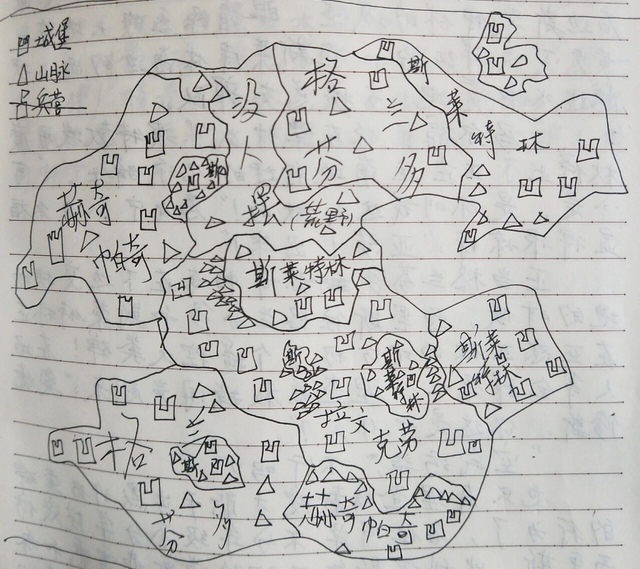 城堡
山脉
兵营
没人择
(荒野)
格兰芬多
斯莱特林
赫奇帕奇
斯
斯莱特林
斯
斯莱特林
斯莱特林
拉文克劳
格兰芬多
斯
赫奇帕奇